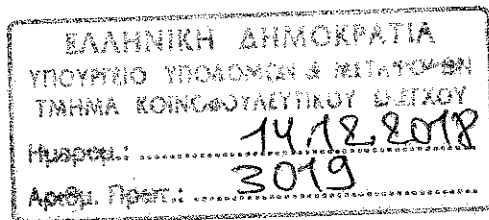 ΕΛΛΗΝΙΚΗ ΔΗΜΟΚΡΑΤΙΑ
ΥΠΟΥΡΓΕΙΟ ΥΠΟΔΟΜΩΝ & ΜΕΤΑΦΟΡΩΝ
ΤΜΗΜΑ ΚΟΙΝΟΒΟΥΛΕΥΤΙΚΟΥ ΕΛΕΓΧΟΥ
Ημερομ.: 14.12.2018
Αριθμ. Πρωτ.: 3019